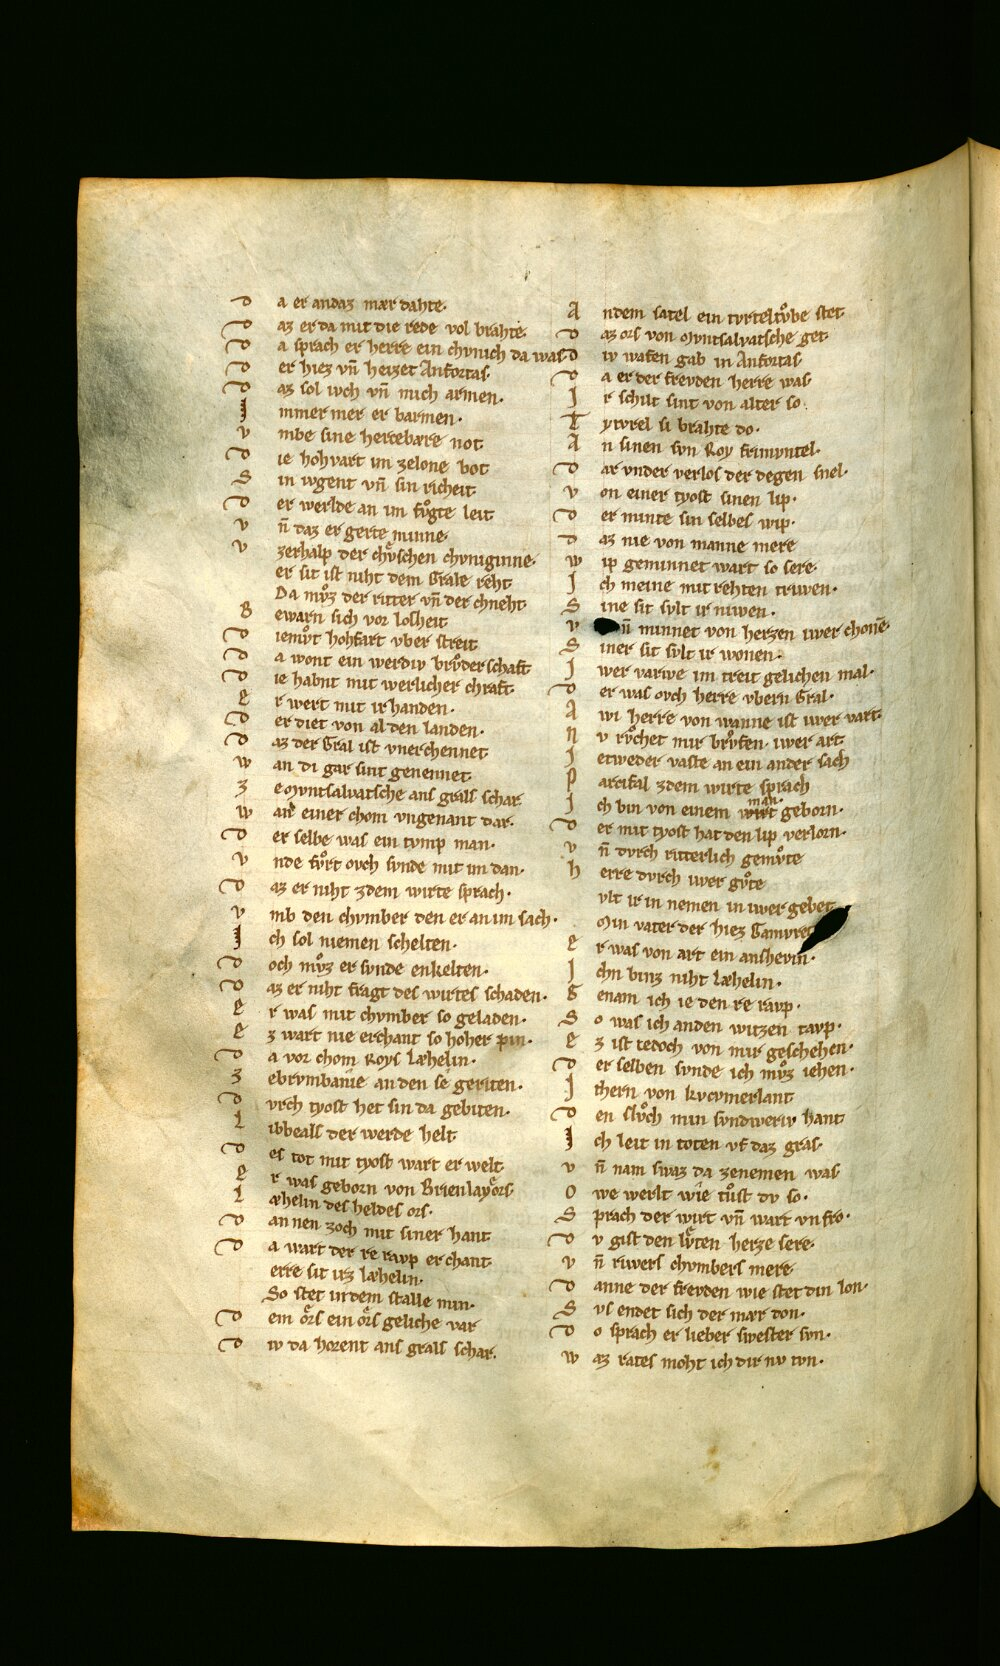 D a er andaz mær dahte·
D az er da mit die rede vol brahte·
D a sprach er herre ein chvnich da was
D er hiez vn̄ heizet Anfortas·
D az sol iwch vn̄ mich armen·
I mmer mer er barmen·
v mbe sine hertebære not
D ie hohvart im zelone bot
S in ivgent vn̄ sin richeit
D er werlde an im fvͦgte leit
v n̄ daz er gerte minne·
v zerhalp der chvͤschen chvniginne·
er sit ist niht dem Grale reht
Da mvͦz der ritter vn̄ der chneht
B ewarn sich vor losheit
D iemvͦt hohfart vber streit
D a wont ein werdiv brvͦderschaft
D ie habnt mit werlicher chraft·
E r wert mit ir handen·
D er diet von al den landen·
D az der Gral ist vnerchennet
W an di gar sint genennet
Z e Mvntsalvatsche ans grals schar
W an einer chom vngenant dar·
D er selbe was ein tvmp man·
v nde fvͦrt ovch svnde mit im dan·
D az er niht zdem wirte sprach·
v mb den chvmber den er an im sach·
I ch sol niemen schelten·
D och mvͦz er svnde enkelten·
D az er niht fragt des wirtes schaden·
E r was mit chvmber so geladen·
E z wart nie erchant so hoher pin·
D a vor chom Roys Læhelin·
Z ebrvmbanie an den se geriten·
D vrch tyost het sin da gebiten·
L ibbeals der werde helt
D es tot mit tyost wart er welt
E r was geborn von Brienlayoͤrs·
L æhelin des heldes ors·
D annen zoch mit siner hant
D a wart der re ravp er chant
erre sit irz læhelin·
So stet in dem stalle min·
D em oͤrs ein oͤrs geliche var
D iv da horent ans grals schar·
A ndem satel ein tvrteltvͦbe stet
D az ors von Mvntsalvatsche get·
D iv wafen gab in Anfortas·
D a er der frevden herre was·
I r schilt sint von alter so·
T ytvrel si brahte do·
A n sinen svn Roy frimvntel·
D ar vnder verlos der degen snel·
v on einer tyost sinen lip·
D er minte sin selbes wip·
D az nie von manne mere
W ip geminnet wart so sere·
I ch meine mit rehten triwen·
S ine sit svlt ir niwen·
v n̄ minnet von herzen iwer chonē·
S iner sit svlt ir wonen·
I wer varwe im treit gelichen mal·
D er was ovch herre vbern Gral·
A wi herre von wanne ist iwer vart·
N v rvͦchet mir brvͤfen· iwer art
I etweder vaste an ein ander sach
P arcifal zdem wirte sprach
I ch bin von einem wirt man geborn·
D er mit tyost hat den lip verlorn·
v n̄ dvrch ritterlich gemvͦte
H erre dvrch iwer gvͤte
vlt ir in nemen in iwer gebet
Min vater der hiez Gamvret
E r was von art ein anshevin·
I chn binz niht læhelin·
G enam ich ie den re ravp·
S o was ich anden witzen tavp·
E z ist iedoch von mir geschehen·
D er selben svnde ich mvͦz iehen·
I thern von kvcvmerlant
D en slvͦch min svndweriv hant
I ch leit in toten vf daz gras·
v n̄ nam swaz da zenemen was
O we werlt wie tvͦst dv so·
S prach der wirt vn̄ wart vnfro·
D v gist den lvͤten herze sere·
v n̄ riwers chvmbers mere
D anne der frevden wie stet din lon·
S vs endet sich der mær don·
D o sprach er lieber swester svn·
W az rates moht ich dir nv tvn·